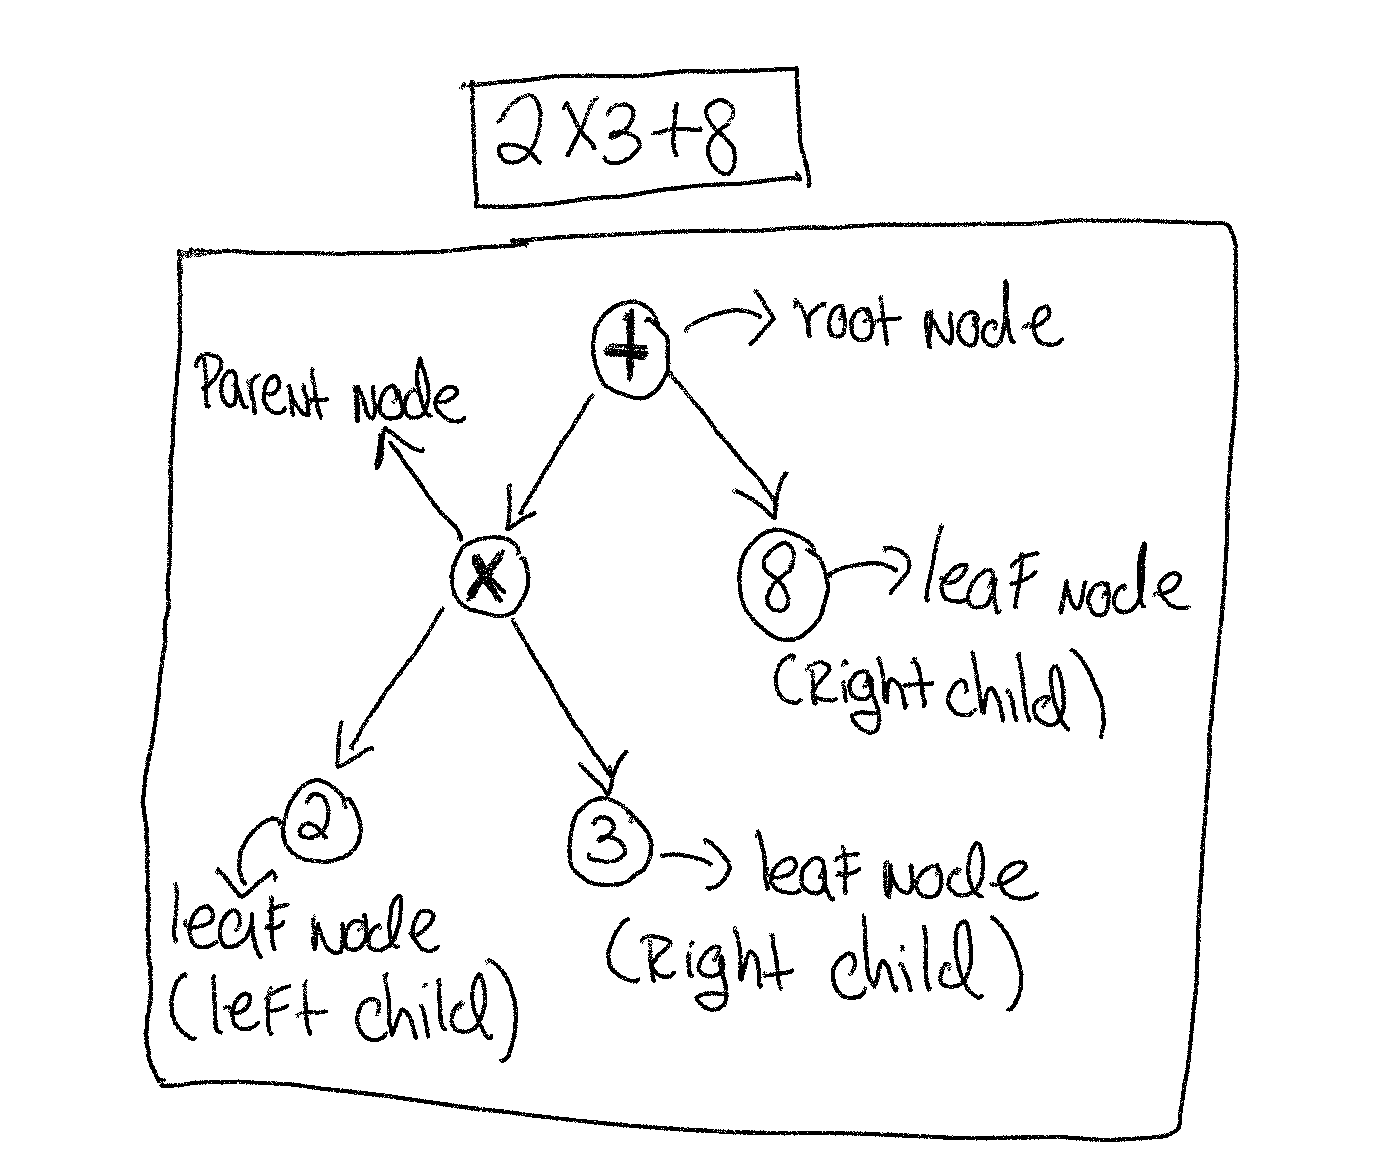 2×3+8
+
root node
Parent node
×
8
leaf node
(Right child)
2
3
leaf node
(Right child)
leaf node
(left child)